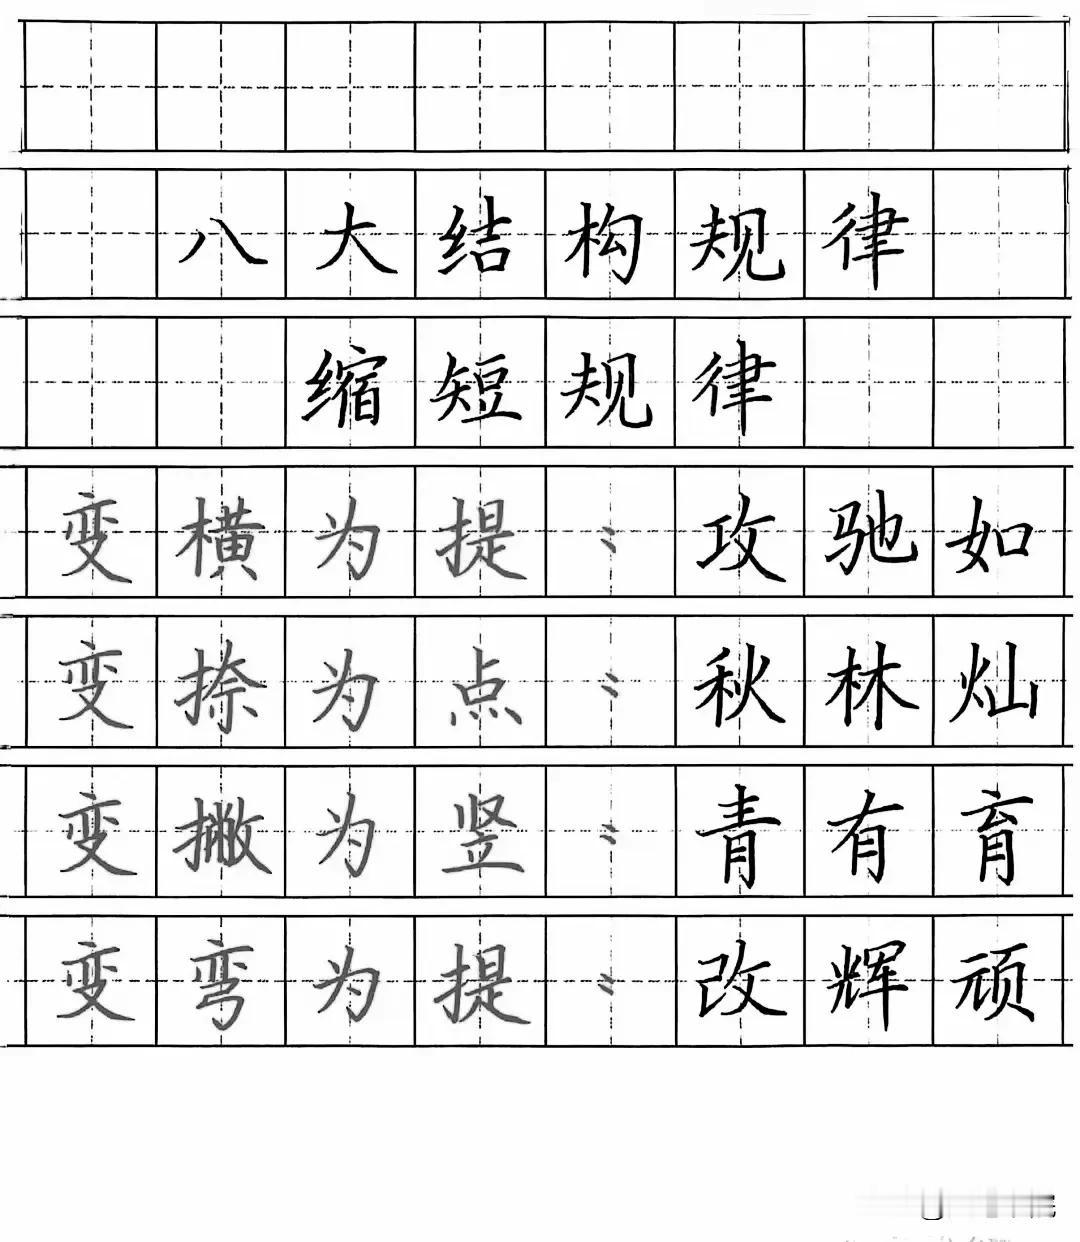 八大结构规律
缩短规律
变横为提：攻驰如
变捺为点：秋林灿
变撇为竖：青有育
变弯为提：改辉顽